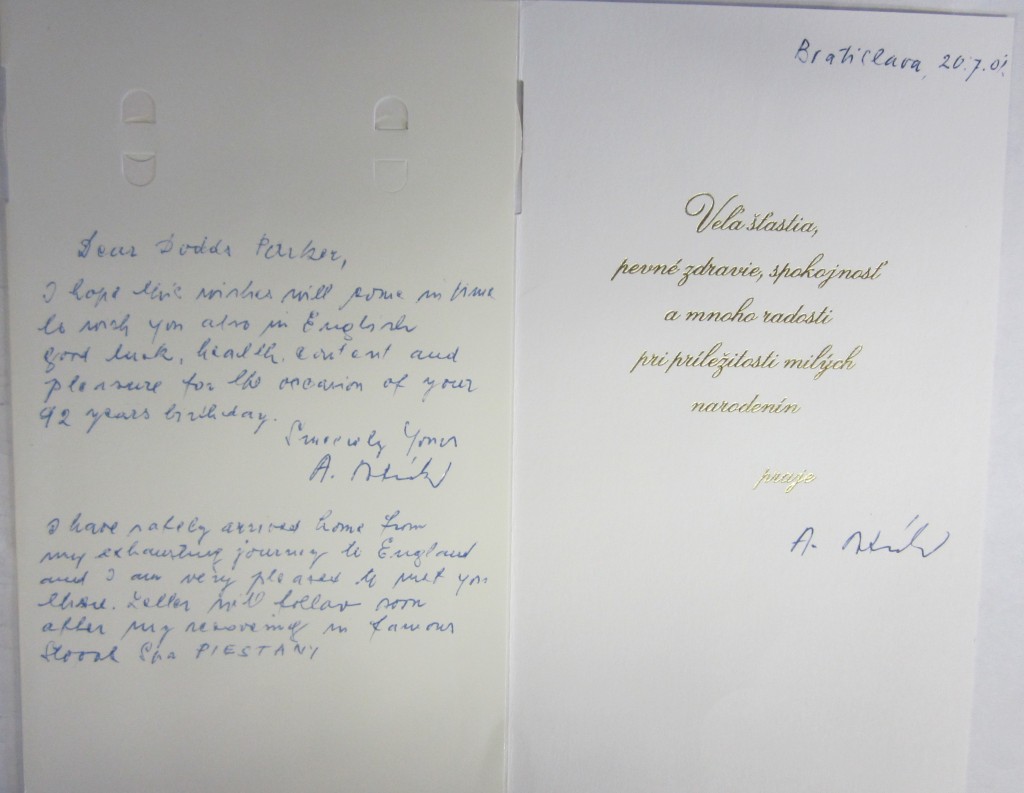 Dear Dodds Parker,
I hope this wishes will come in time
to wish you also in English
good luck, health, content and
pleasure for the occasion of your
92 years birthday.
Sincerely Yours
A.
I have safely arrived home from
my exhausting journey to England
and I am very pleased to met you
there. Letter will follow soon
after my recovering in famous
Slovak Spa PIESTANY
Bratislava, 20.7.01.
Veľa šťastia,
pevné zdravie, spokojnosť
a mnoho radosti
pri príležitosti milých
narodenín
praje
A.